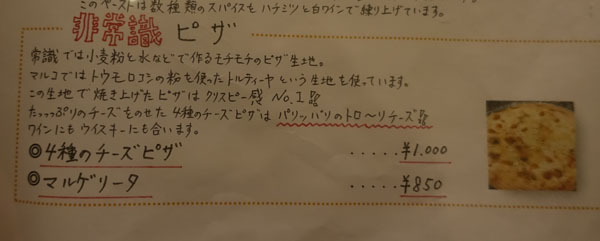 このペーストは数種類のスパイスをハチミツと白ワインで練り上げています。
非常識ピザ
常識では小麦粉と水などで作るモチモチのピザ生地。
マルコではトウモロコシの粉を使ったトルティーヤという生地を使っています。
この生地で焼き上げたピザはクリスピー感 No.1
たっっっぷりのチーズをのせた4種のチーズピザはパリッパリのトロ〜リチーズ
ワインにもウイスキーにも合います。
◎4種のチーズピザ ‥‥‥¥1.000
◎マルゲリータ ‥‥‥¥850